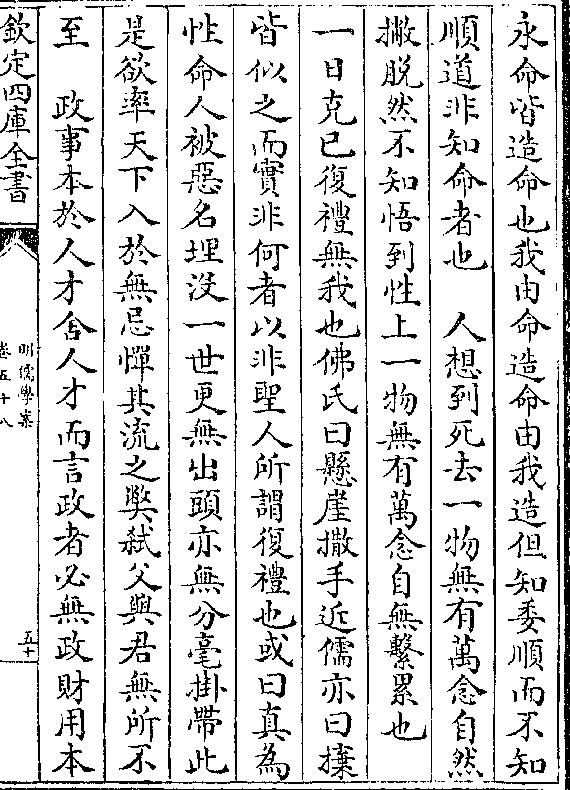 永命皆造命也我由命造命由我造但知委順而不知
順道非知命者也　人想到死去一物無有萬念自然
撇脫然不知悟到性上一物無有萬念自無繫累也
一日克已復禮無我也佛氏曰懸崖撒手近儒亦曰擽
皆似之而實非何者以非聖人所謂復禮也或曰真為
性命人被惡名埋沒一世更無出頭亦無分毫掛帶此
是欲率天下入於無忌憚其流之獘弒父與君無所不
至　政事本於人才舍人才而言政者必無政財用本
欽定四庫全書
明儒學案
卷五十八
五十